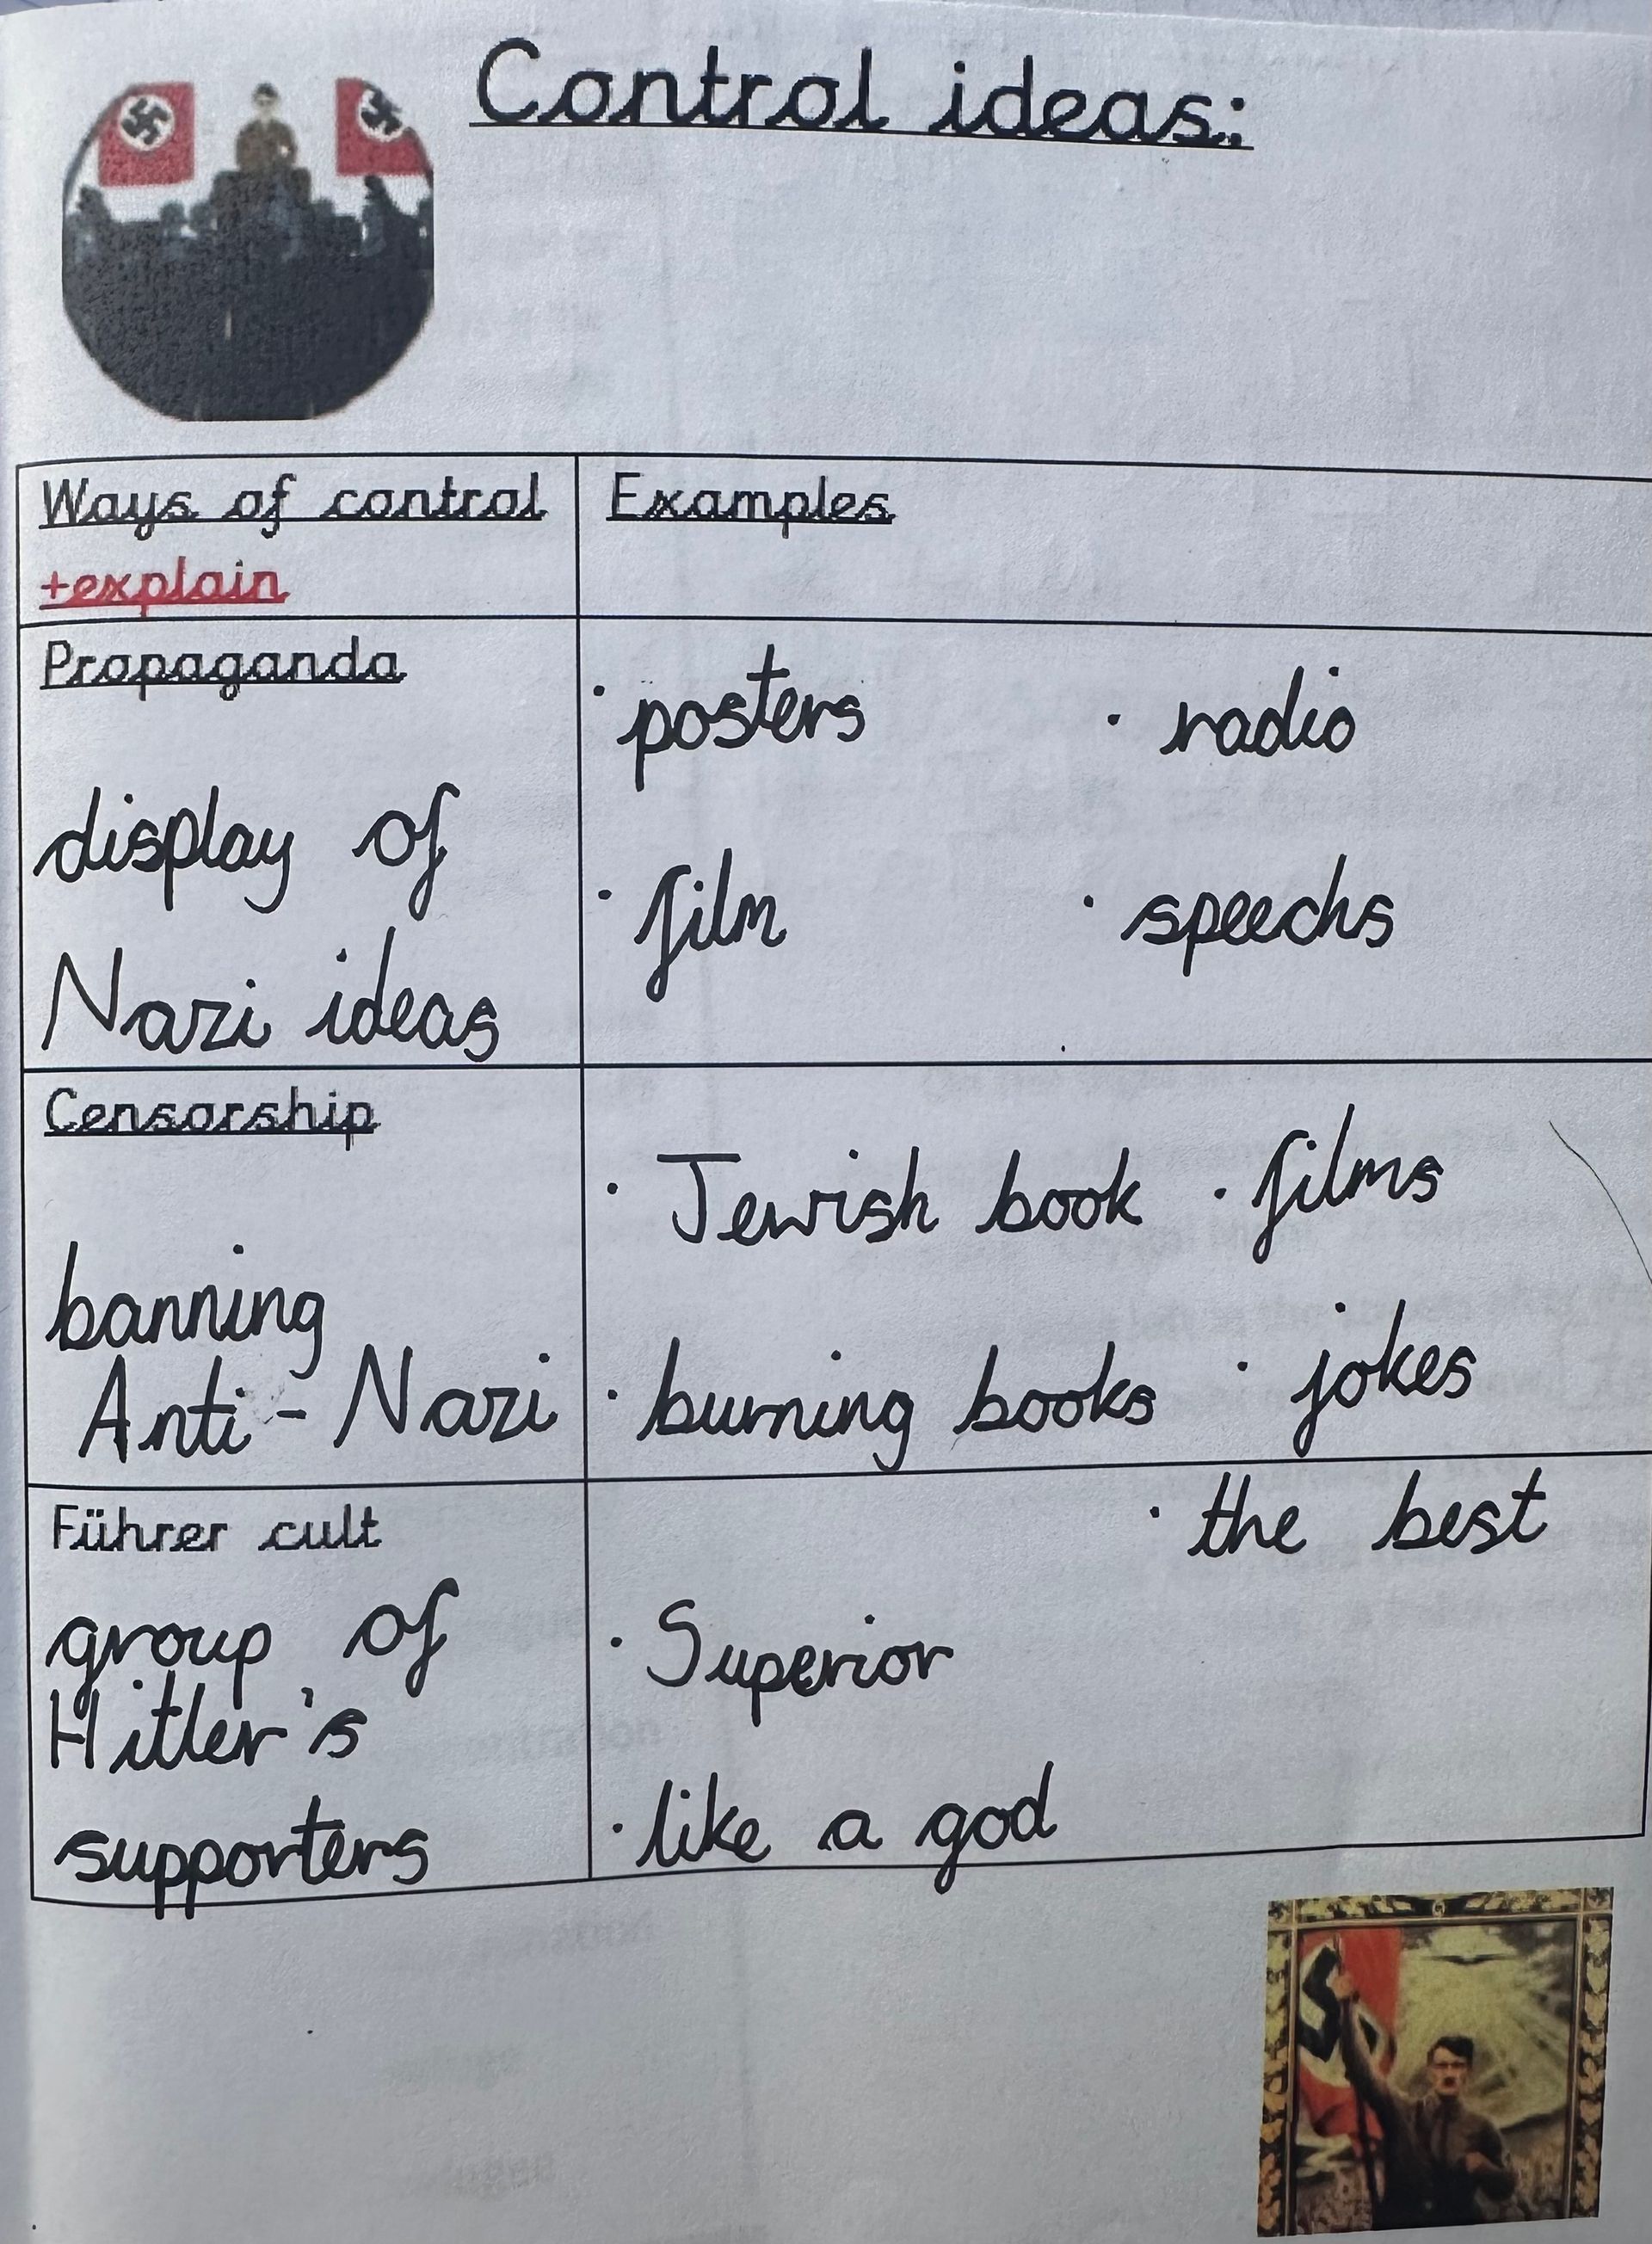 Control ideas:
Ways of control
+explain
Examples
Propaganda
display of
Nazi ideas
· posters · radio
· film · speechs
Censorship
banning
Anti-Nazi
· Jewish book · films
· burning books · jokes
Führer cult
group of
Hitler's
supporters
· the best
· Superior
· like a god